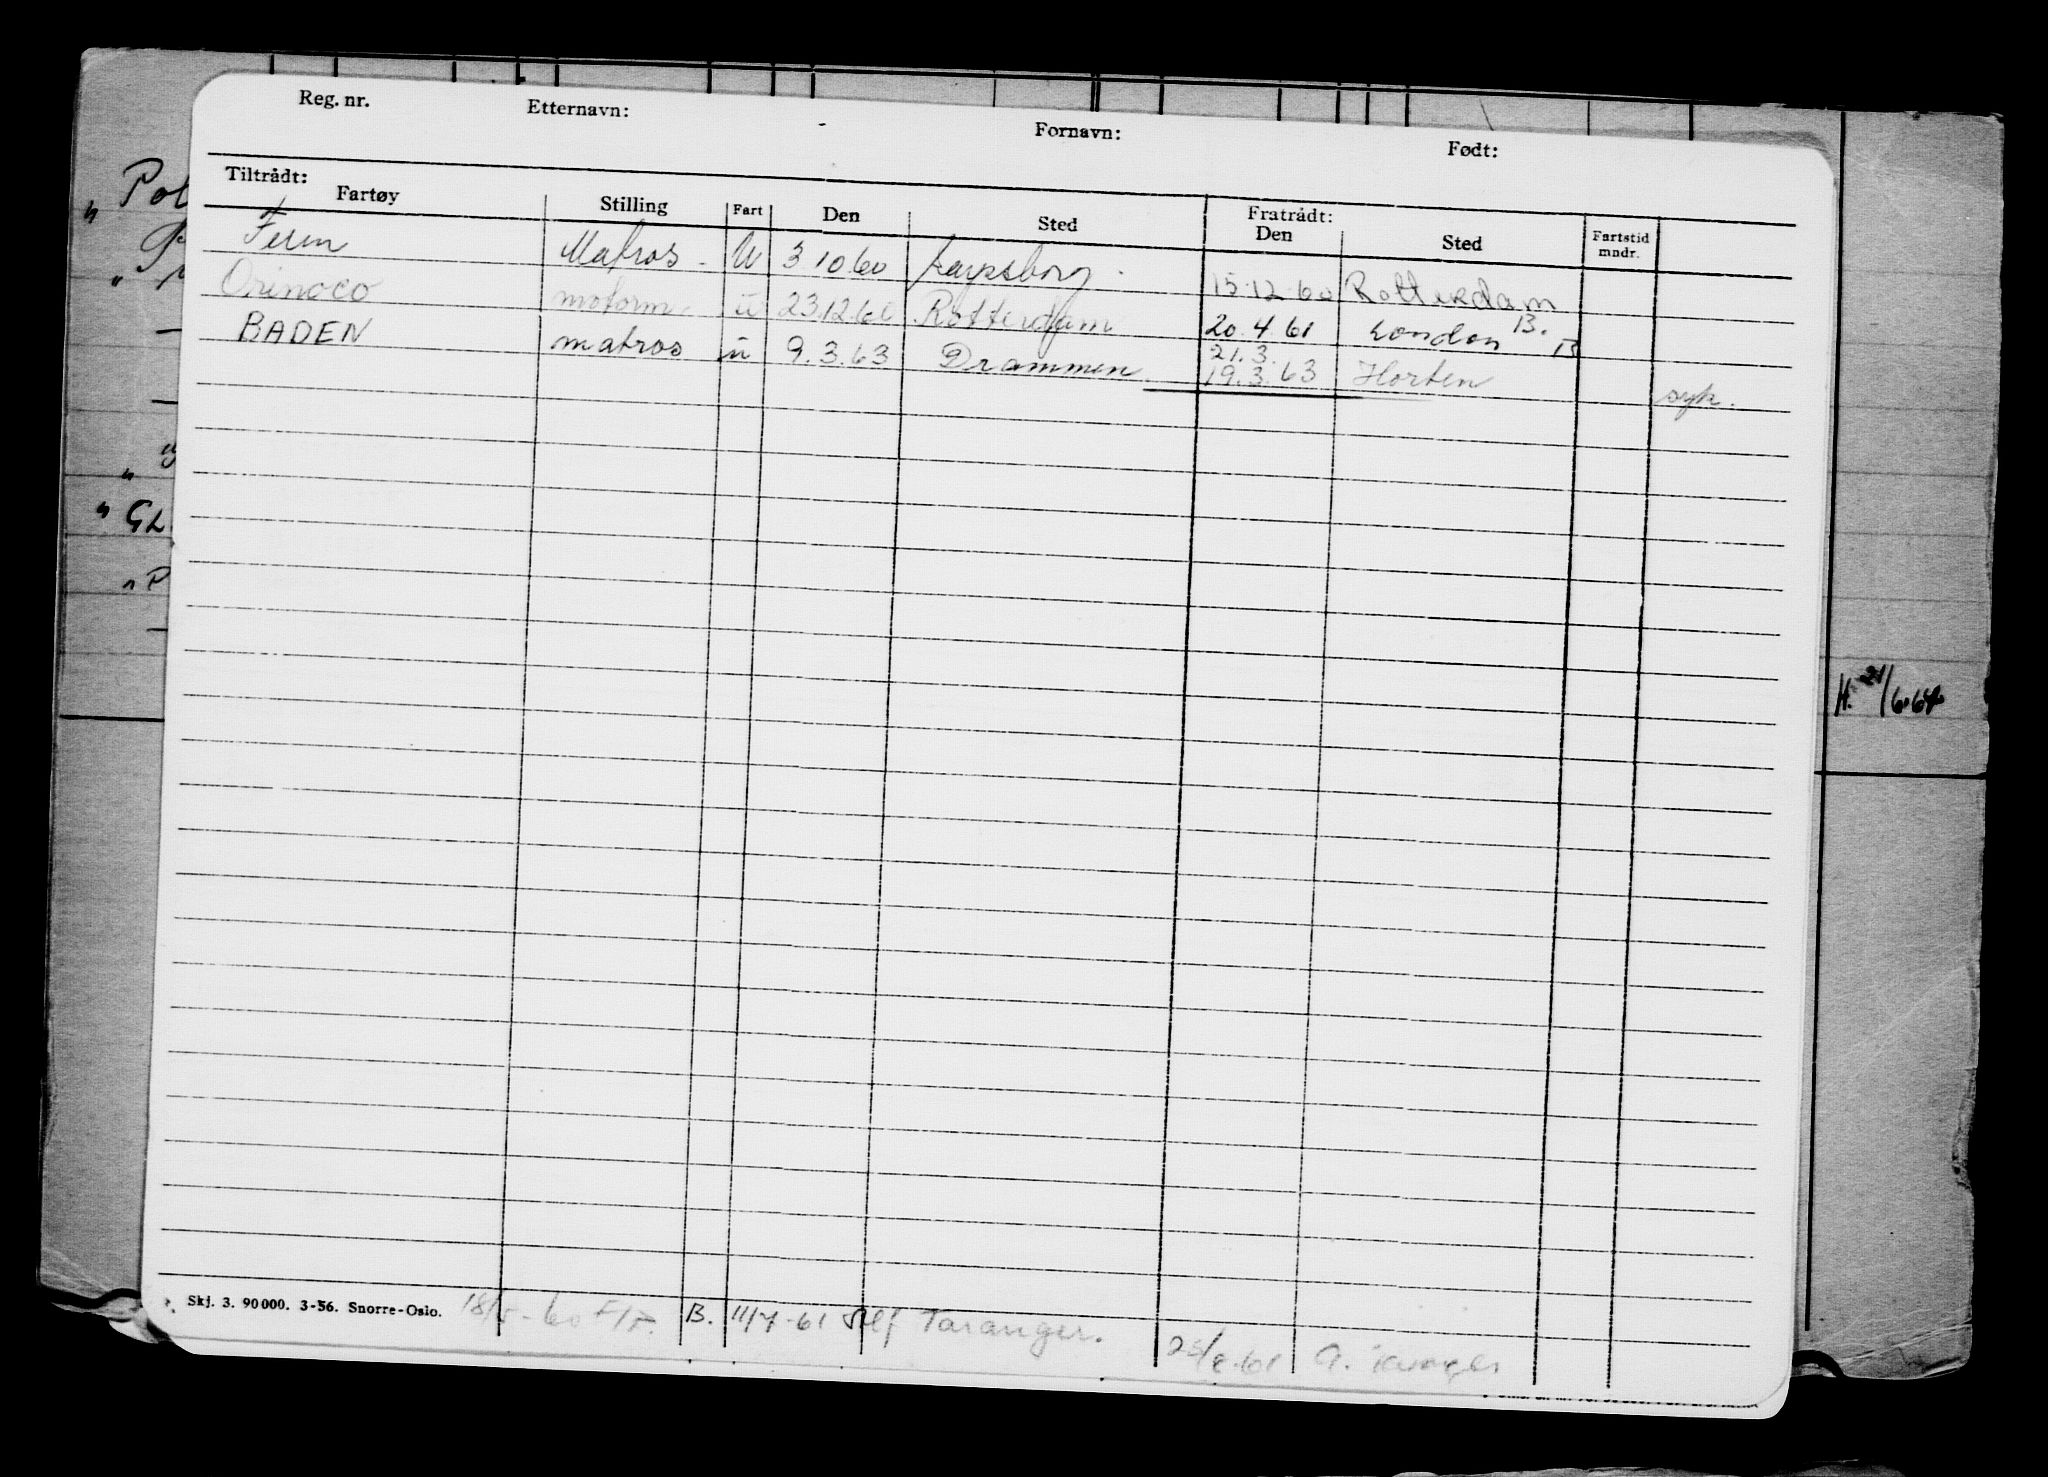 Reg. nr. Etternavn: Fornavn: Født:
Tiltrådt: Fratrådt:
Fartøy Stilling Fart Den Sted Den Sted Fartstid mndr.
Ferm Matros - U 3.10.60 Sarpsborg. 15.12.60 Rotterdam
Orinoco motorm. u 23.12.60 Rotterdam 20.4.61 London B.
BADEN matros u 9.3.63 Drammen 21.3. 19.3.63 Horten B syk.
" Pol
"
"
" GL
" P
H. 21/6.64
Skj. 3. 90000. 3-56. Snorre-Oslo. 18/5-60 B. 11/7-61 Alf Taranger. 25/ 61 A.